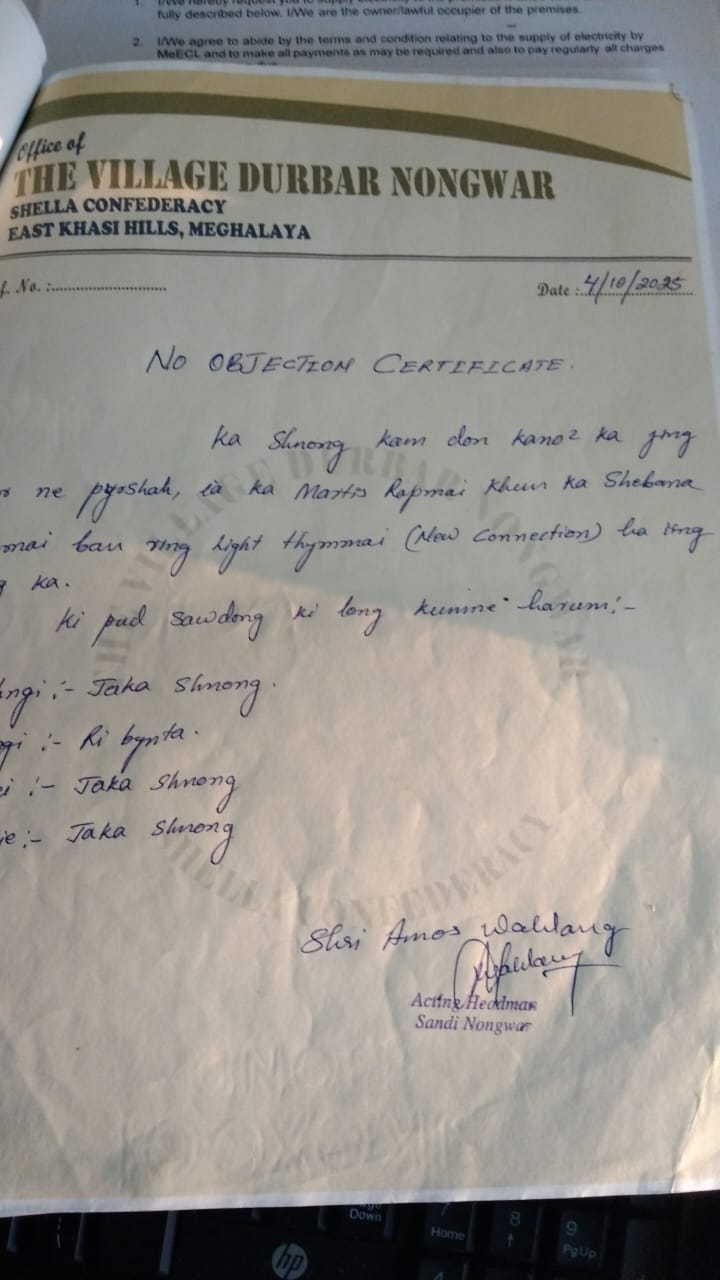 1. I/We hereby request you to supply electricity
fully described below. I/We are the owner/lawful occupier of the premises.
2. I/We agree to abide by the terms and condition relating to the supply of electricity by
MeECL and to make all payments as may be required and also to pay regularly all charges
Office of
THE VILLAGE DURBAR NONGWAR
SHELLA CONFEDERACY
EAST KHASI HILLS, MEGHALAYA
f. No. :............................
Date :..4/10/2025
NO OBJECTION CERTIFICATE.
Ka Shnong kam don kano2 ka jing
ne pyrshah, ia ka Martis Rapmai khun ka Shebana
mai ban ring Light thymmai (New Connection) ha iing
ka.
Ki pud sawdong ki long kumne harum:-
ngi :- Jaka Shnong.
gi :- Ri bynta.
i :- Jaka Shnong
ie :- Jaka Shnong
THE VILLAGE DURBAR NONGWAR
SHELLA CONFEDERACY
Shri Amos Wahlang
Acting Headman
Sandi Nongwar
Down
7
Home
8
9
PgUp
hp